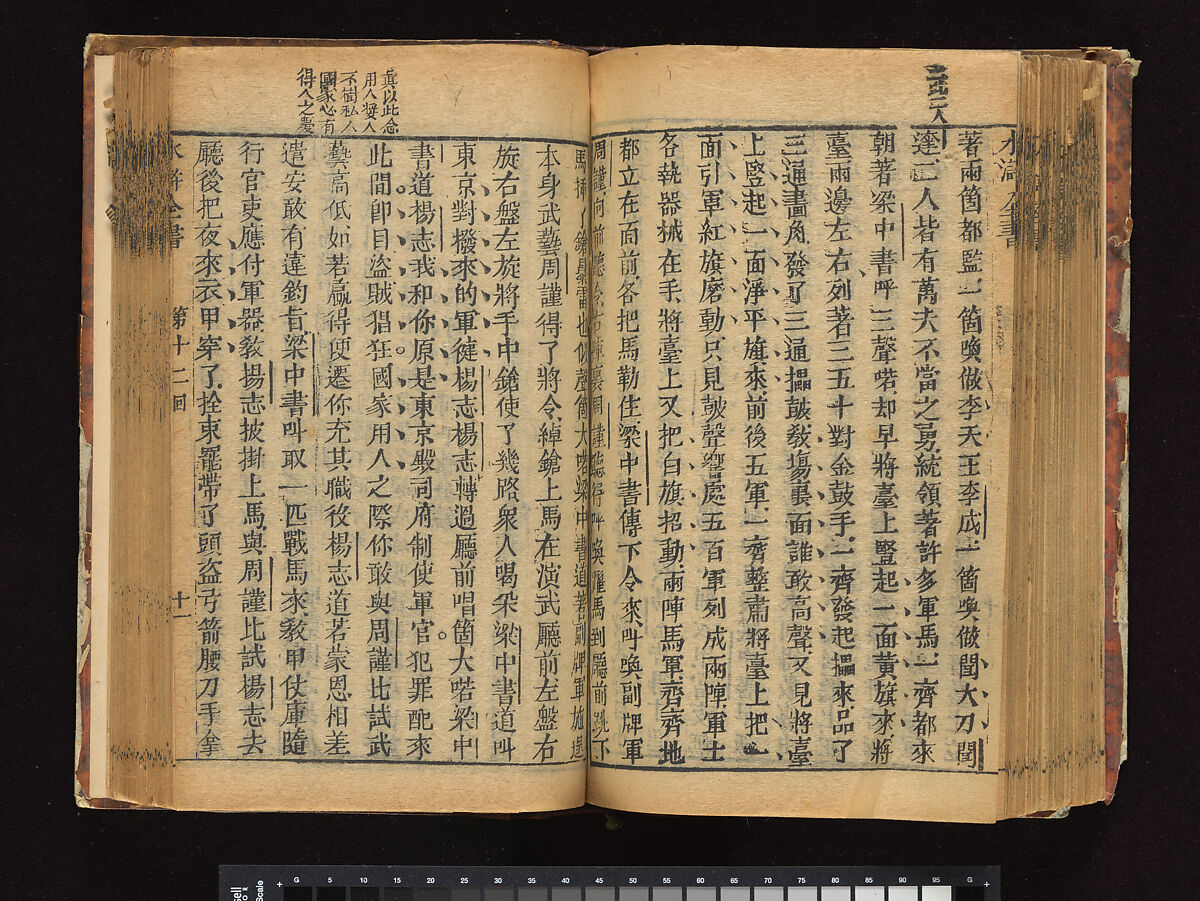 水滸全書
著兩箇都監一箇喚做李天王李成一箇喚做聞大刀聞
達二人皆有萬夫不當之勇統領著許多軍馬一齊都來
朝著梁中書呼三聲喏却早將臺上竪起一面黃旗來將
臺兩邊左右列著三五十對金鼓手一齊發起擂來品了
三通畫角發了三通擂鼓敎場裏面誰敢高聲又見將臺
上竪起一面淨平旗來前後五軍一齊整肅將臺上把一
面引軍紅旗磨動只見鼓聲響處五百軍列成兩陣軍士
各執器械在手將臺上又把白旗招動兩陣馬軍齊齊地
都立在面前各把馬勒住梁中書傳下令來呌喚副牌軍
周謹向前聽令右陣裏周謹聽得呼喚躍馬到廳前跳下
馬插了鎗暴雷也似聲箇大喏梁中書道著副牌軍施逞
本身武藝周謹得了將令綽鎗上馬在演武廳前左盤右
旋右盤左旋將手中鎗使了幾路衆人喝采梁中書道呌
東京對撥來的軍健楊志楊志轉過廳前唱箇大喏梁中
書道楊志我和你原是東京殿司府制使軍官犯罪配來
此間卽目盜賊猖狂國家用人之際你敢與周謹比試武
藝高低如若贏得便遷你充其職役楊志道若蒙恩相差
遣安敢有違鈞旨梁中書呌取一匹戰馬來敎甲仗庫隨
行官吏應付軍器敎楊志披掛上馬與周謹比試楊志去
廳後把夜來衣甲穿了拴束罷帶了頭盔弓箭腰刀手拿
眞以此念
用人娶人
不間私人
國家必有
得人之慶
水滸全書
第十二回
十一
G 5 10 15 20 25 30 35 40 45 50 55 60 65 70 75 80 85 90 95 G
Scale